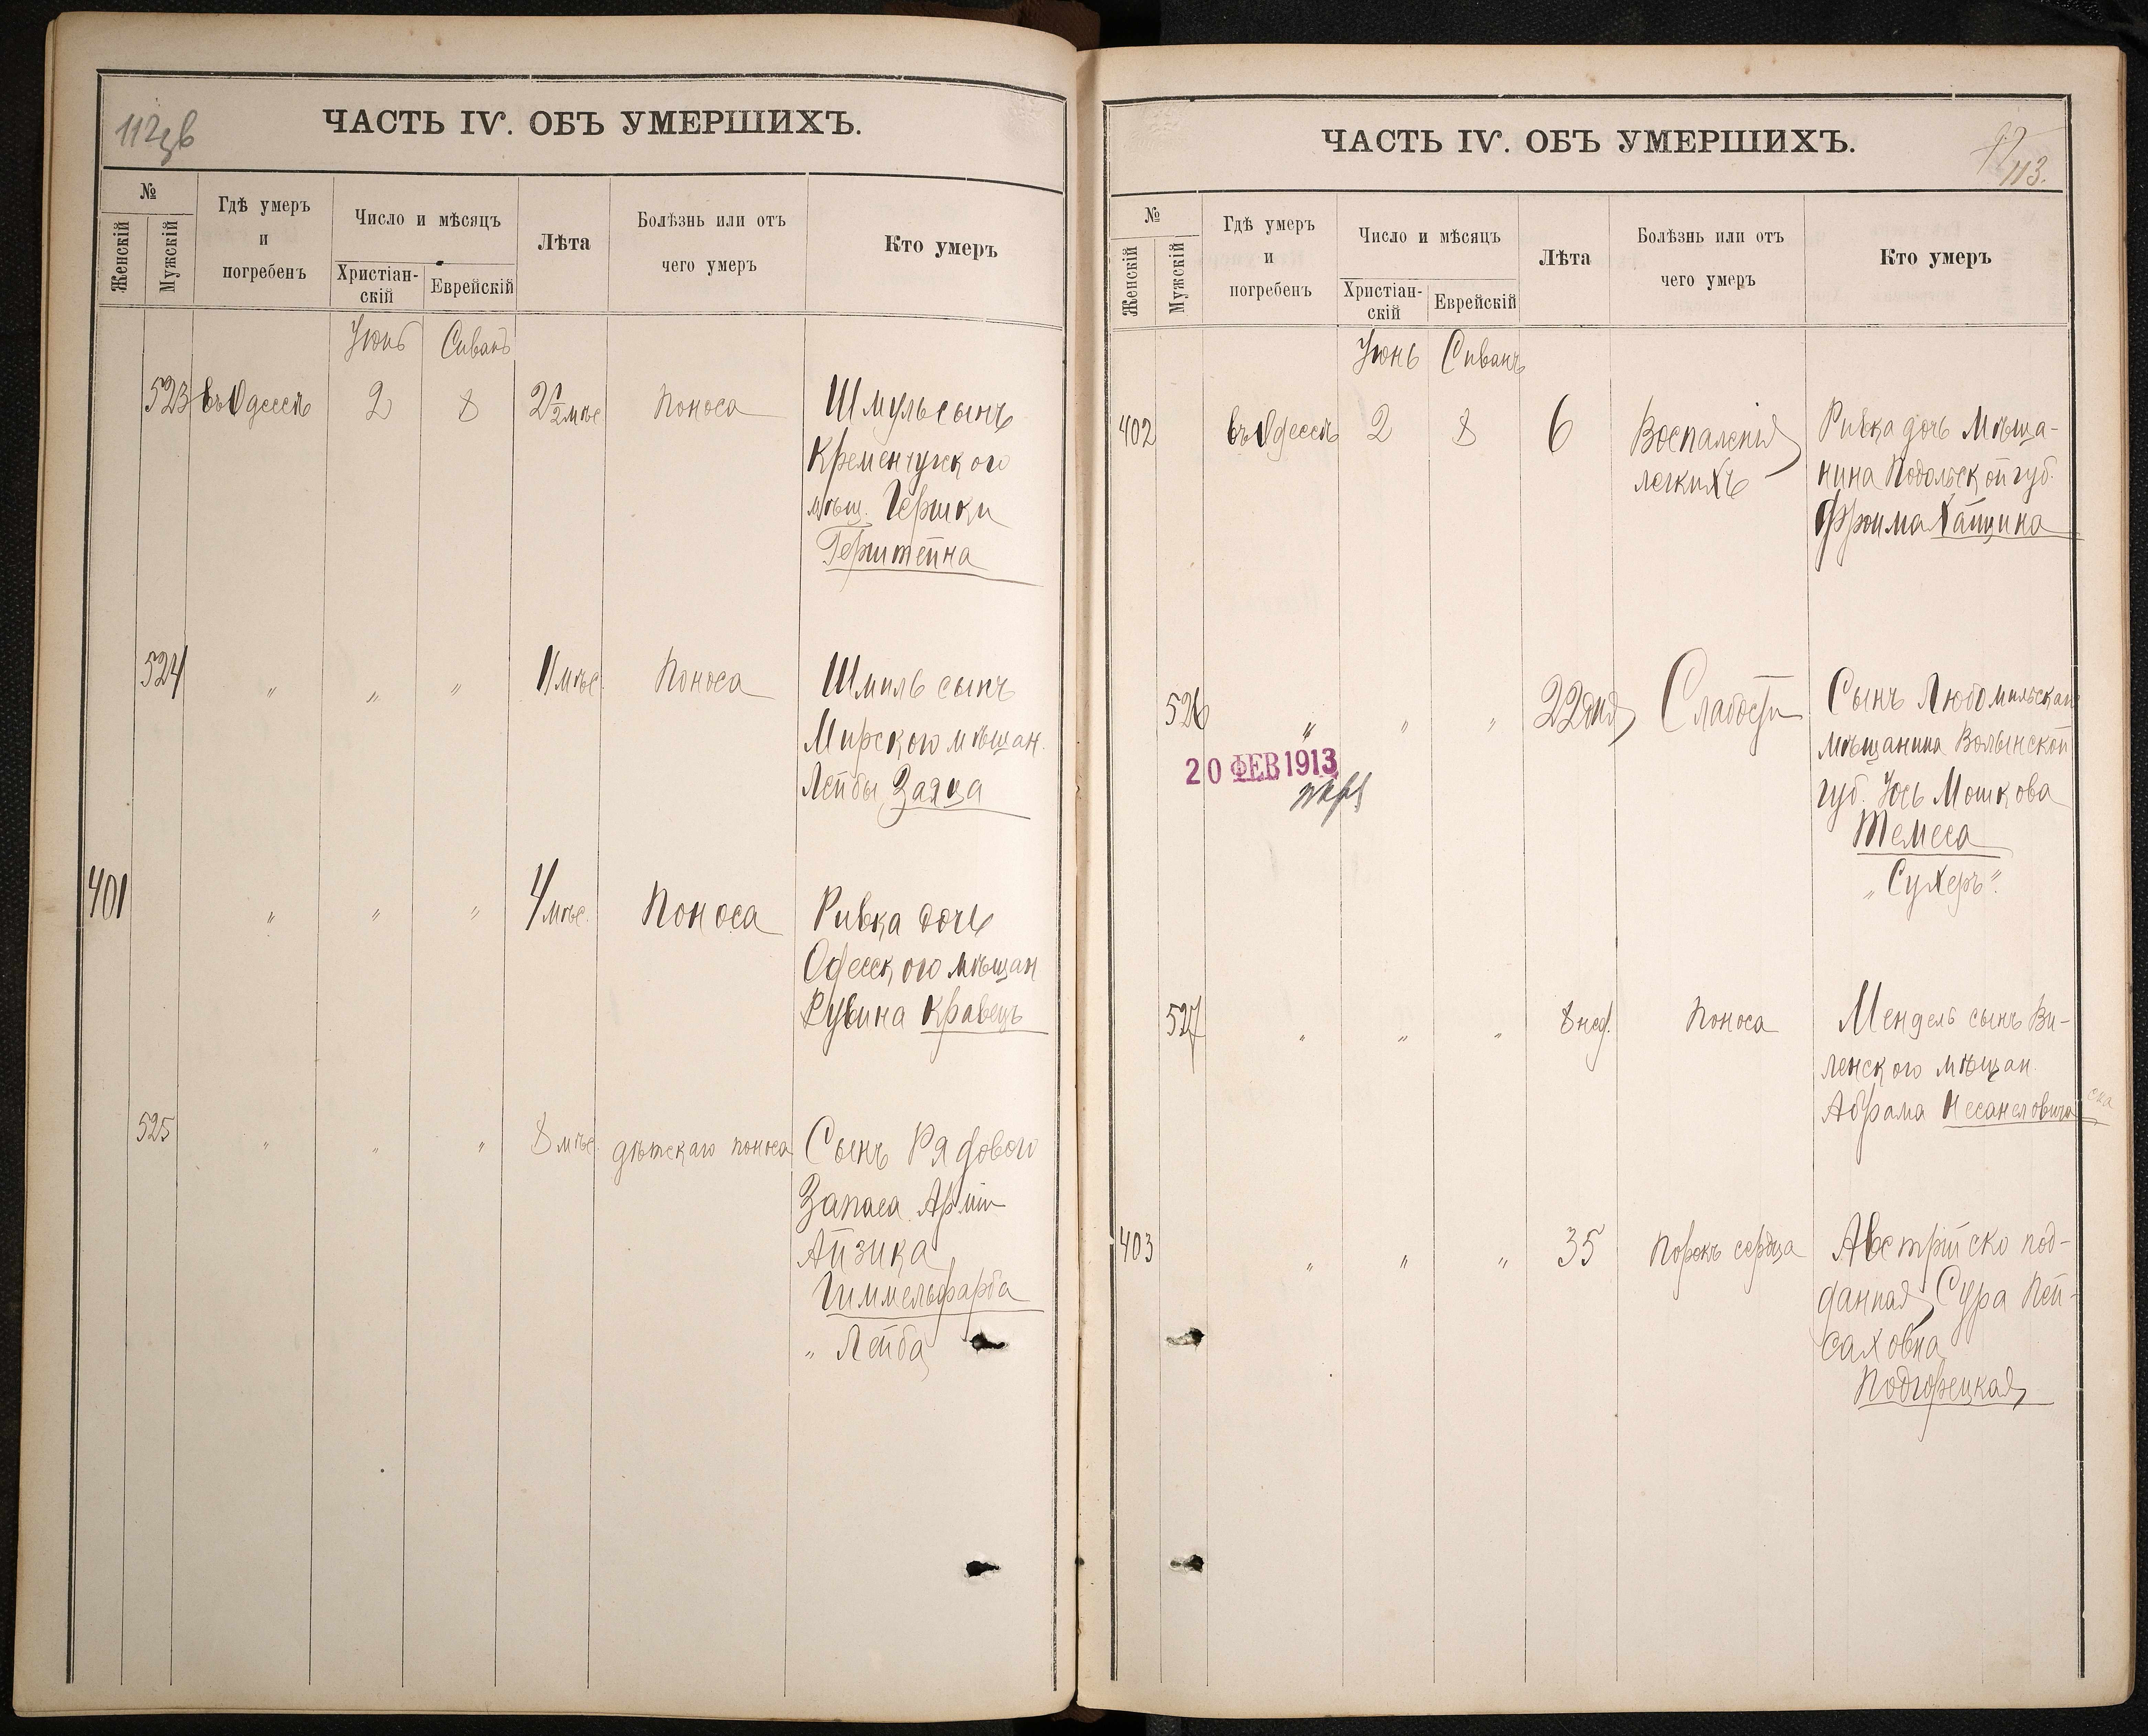 112 об
ЧАСТЬ IV. ОБЪ УМЕРШИХЪ.
№
Женскій
Мужскій
Гдѣ умеръ
и
погребенъ
Число и мѣсяцъ
Христіан-
скій
Еврейскій
Лѣта
Болѣзнь или отъ
чего умеръ
Кто умеръ
Іюнь Сиванъ
523 въ Одессѣ 2 8 2 1/2 мѣс. Поноса Шмуль сынъ
Кременчугского
мѣщ. Гершки
Герштейна
524 " " " 11 мѣс. Поноса Шмиль сынъ
Мирского мѣщан.
Лейбы Заяца
401 " " " 4 мѣс. Поноса Ривка дочь
Одесского мѣщан
Рувина Кравецъ
525 " " " 8 мѣс. дѣтскаго поноса Сынъ Рядового
Запаса Арміи
Айзика
Гиммельфарба
" Лейба
ЧАСТЬ IV. ОБЪ УМЕРШИХЪ.
113.
№
Женскій
Мужскій
Гдѣ умеръ
и
погребенъ
Число и мѣсяцъ
Христіан-
скій
Еврейскій
Лѣта
Болѣзнь или отъ
чего умеръ
Кто умеръ
Іюнь Сиванъ
402 въ Одессѣ 2 8 6 Воспаленія Ривка дочь Мѣща-
легкихъ нина Подольской губ.
Фроима Хаицина
526 " " " 22 дня Слабости Сынъ Любомльскаго
мѣщанина Волынской
20 ФЕВ 1913
губ. Іось Мошкова
Темеса
"Сухеръ".
527 " " " 8 нед. Поноса Мендель сынъ Ви-
ленского мѣщан.
Абрама Несанеловича
403 " " " 35 Порокъ сердца Австрійско под-
данная Сура Пей-
саховна
Подгорецкая